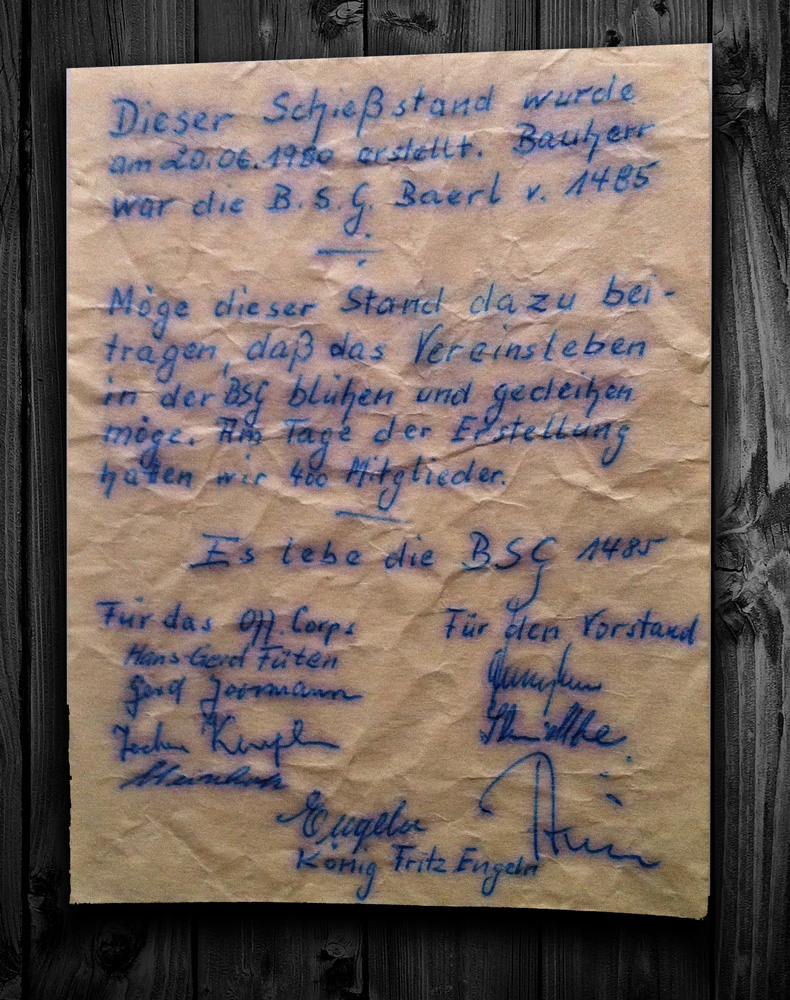 Dieser Schießstand wurde
am 20.06.1980 erstellt. Bauherr
war die B.S.G. Baerl v. 1485
Möge dieser Stand dazu bei-
tragen, daß das Vereinsleben
in der BSG blühen und gedeihen
möge. Am Tage der Erstellung
haten wir 400 Mitglieder.
Es lebe die BSG 1485
Für das Off. Corps
Für den Vorstand
Hans-Gerd Füten
Gerd Joormann
Engeln
König Fritz Engeln